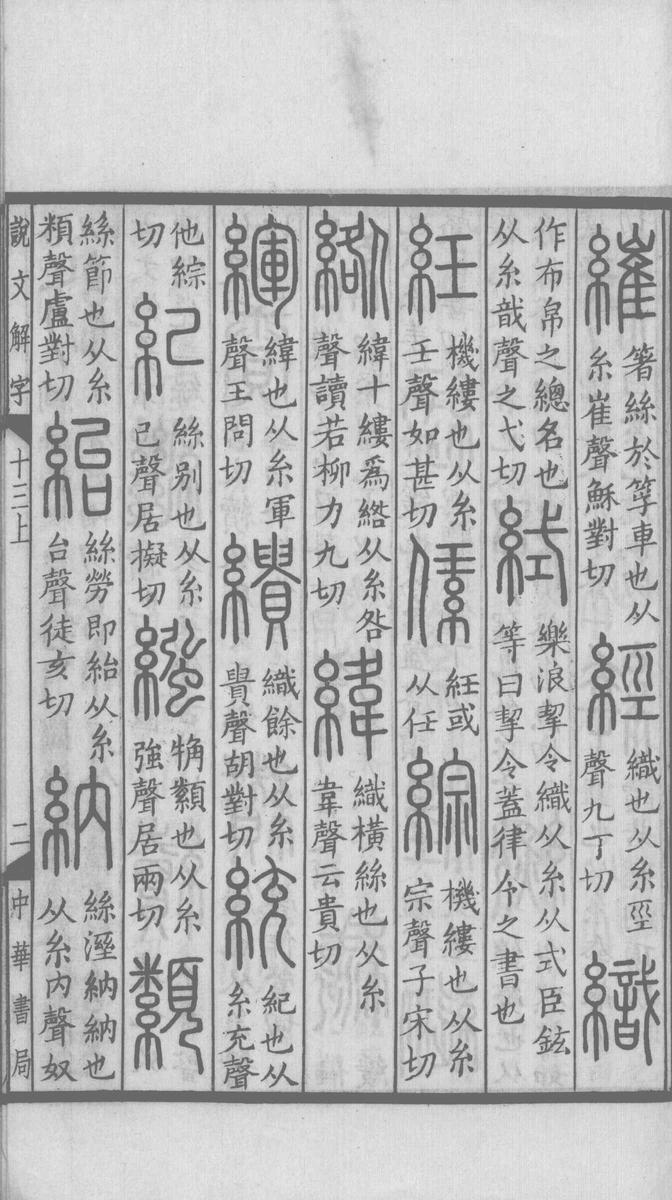 繀 箸絲於筟車也从糸崔聲穌對切 經 織也从糸巠聲九丁切 織
作布帛之總名也从糸戠聲之弋切 𦀗 樂浪挈令織从糸从式臣鉉等曰挈令蓋律令之書也
紝 機縷也从糸壬聲如甚切 䋕 紝或从任 綜 機縷也从糸宗聲子宋切
綹 緯十縷爲綹从糸咎聲讀若柳力九切 緯 織橫絲也从糸韋聲云貴切
緷 緯也从糸軍聲王問切 繢 織餘也从糸貴聲胡對切 統 紀也从糸充聲
他綜切 紀 絲別也从糸己聲居擬切 繈 觕纇也从糸強聲居兩切 纇
絲節也从糸頪聲盧對切 紿 絲勞即紿从糸台聲徒亥切 納 絲溼納納也从糸內聲奴
說文解字 十三上 二 中華書局